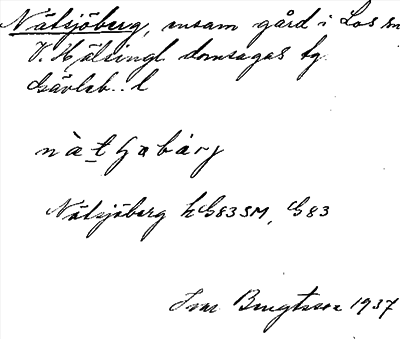 Nätsjöberg, ensam gård i Los sn
V. Hälsingl. domsagas tg.
Gävleb. l
nàt ʃøbærj
Nätsjöberg hG83SM, G83
Ivar Bengtsson 1937